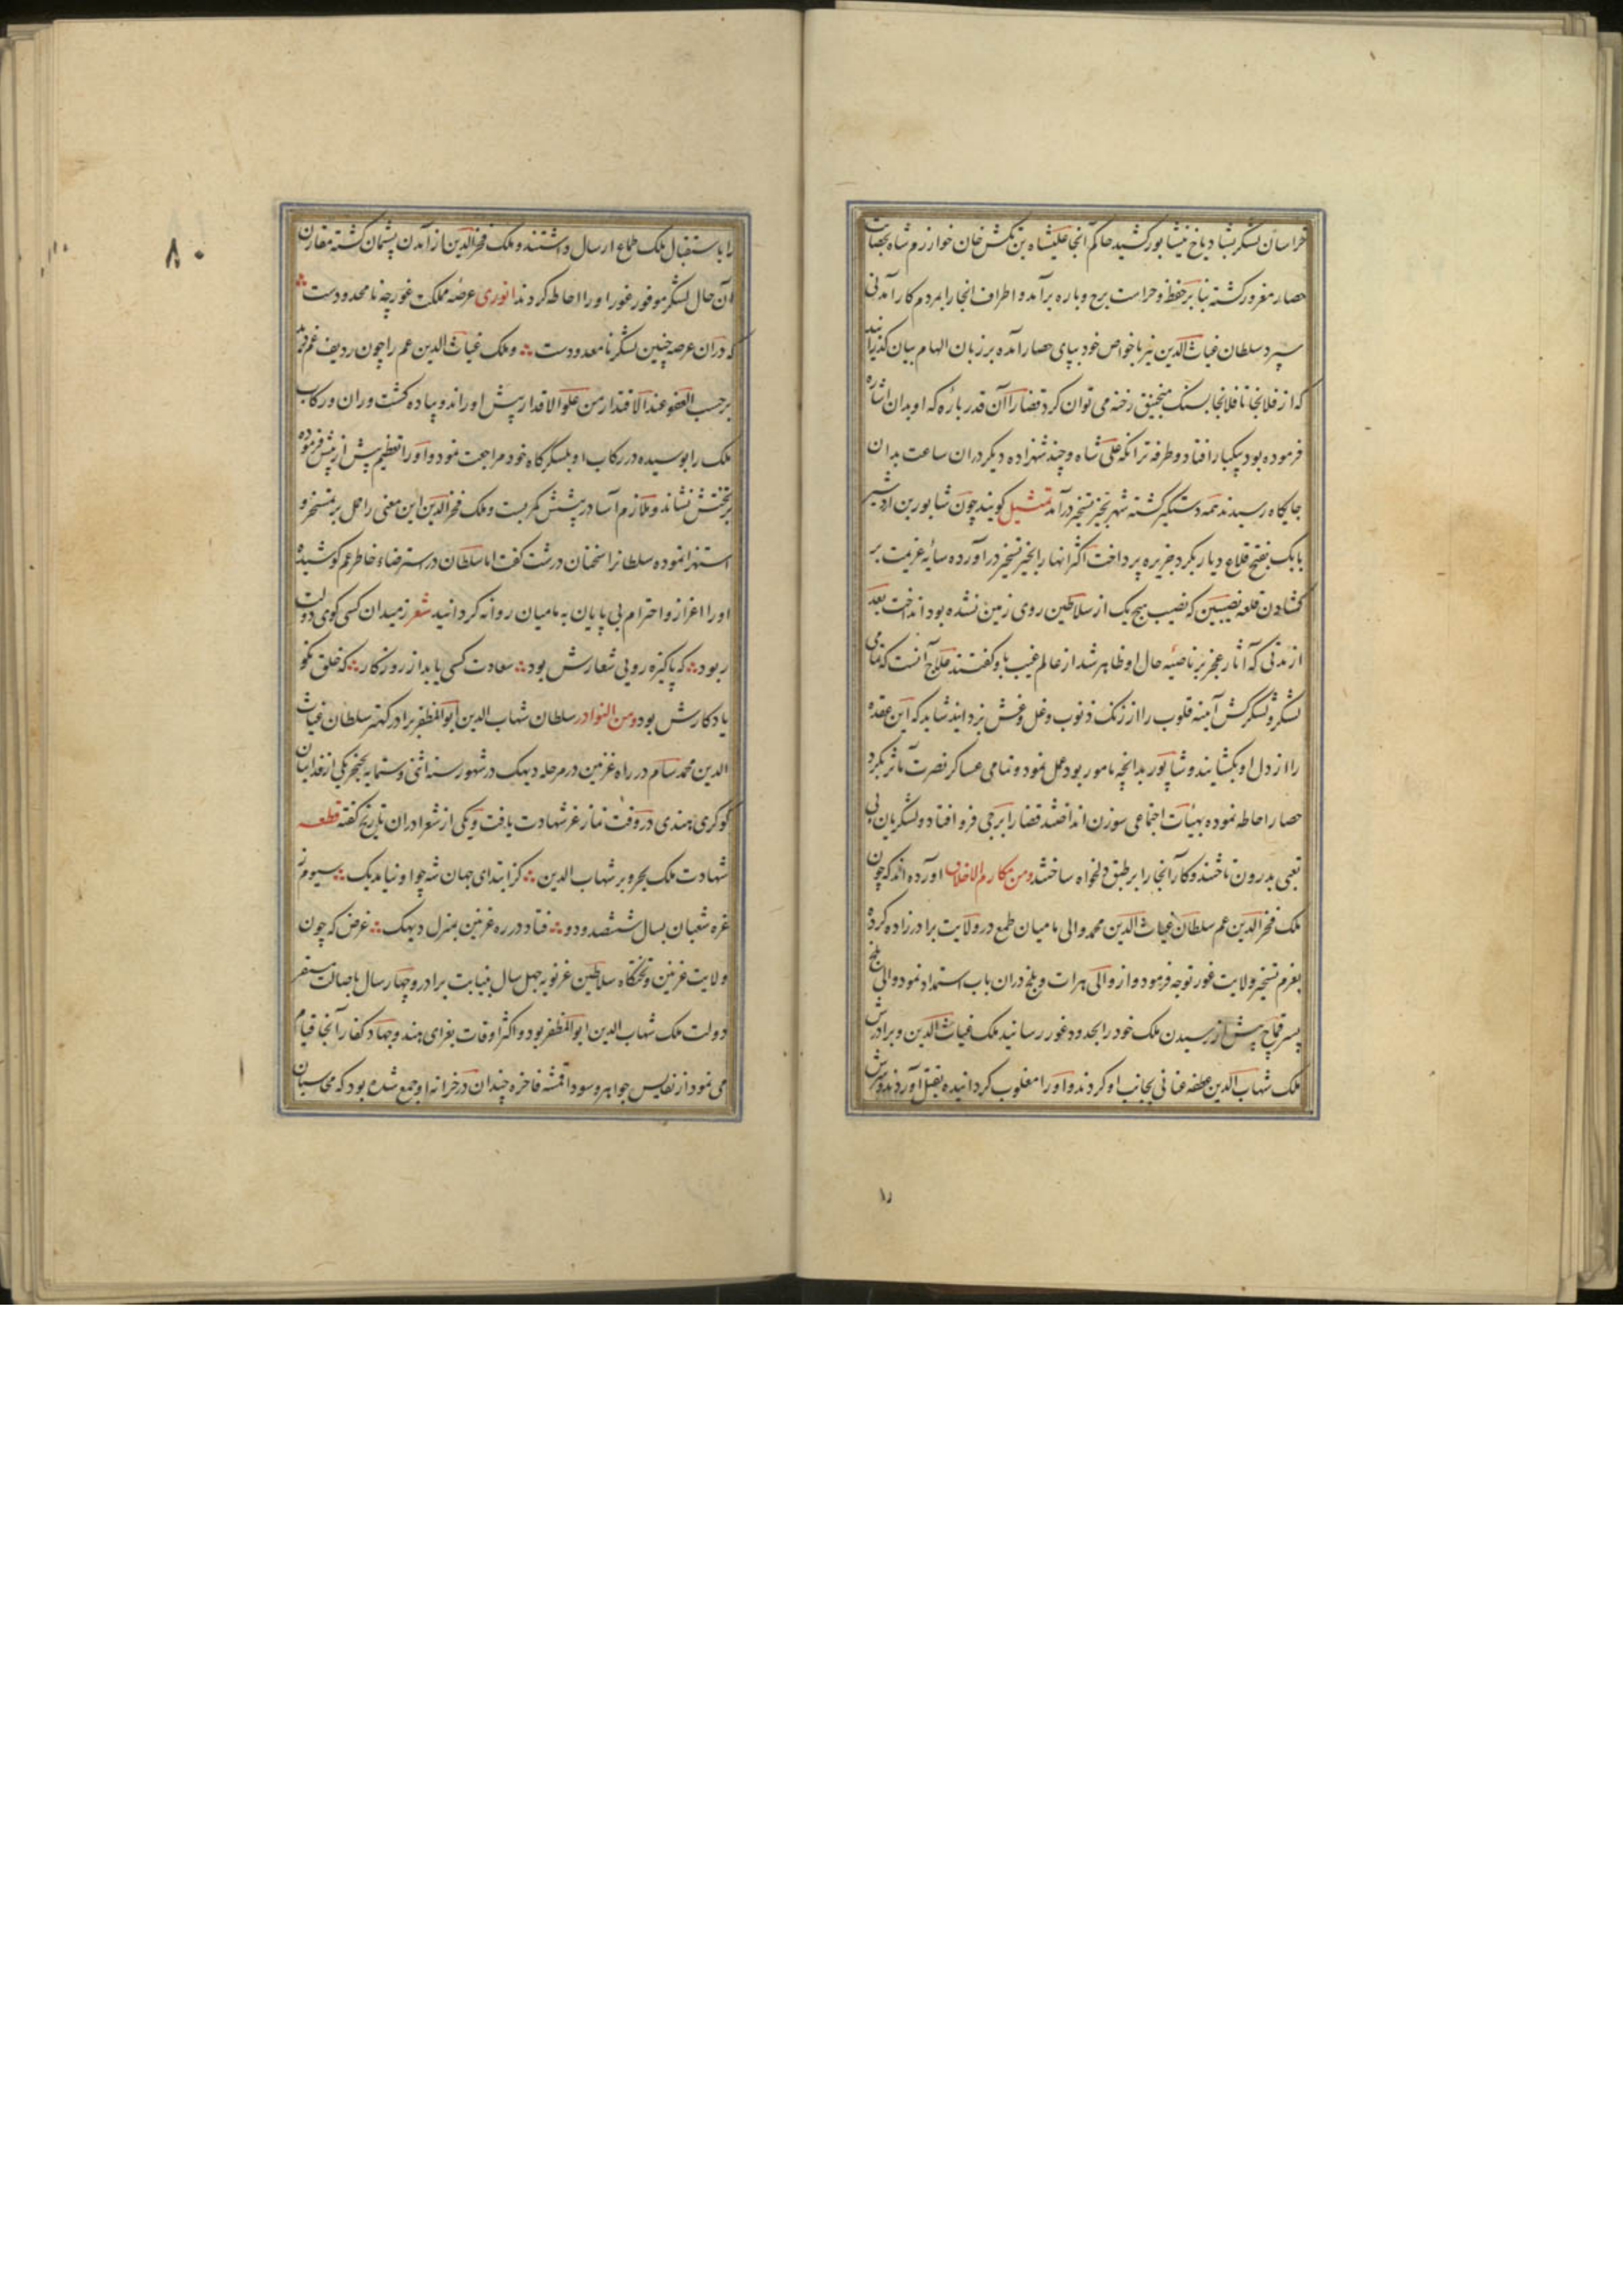 خراسان لشکر بشادیاخ نیشابور کشید حاکم آنجا علیشاه بن تکش خان خوارزمشاه بحصانت
حصار مغرور کشته بنابر حفظ و حراست برج و باره برآمد و اطراف انجا را بمردم کارآمدنی
سپرد سلطان غیاث الدین نیز با خواص خود بپای حصار آمده بر زبان الهام بیان گذرانید
که از فلانجا تا فلانجا بسنک منجنیق رخنه می توان کرد قضا را آن قدر باره که او بدان اشاره
فرموده بود بیکبار افتاد و طرفه تر انکه علی شاه و چند شهزاده دیکر دران ساعت بدان
جایگاه رسیدند همه دستکیر کشته شهر بحیز تسخیر درآمد تمثیل کویند چون شابور بن اردشیر
بابک بفتح قلاع دیار بکر و جزیره پرداخت اکثر انها را بحیز تسخیر دراورده سایه عزیمت بر
کشادن قلعه نصیبین که نصیب هیچ یک از سلاطین روی زمین نشده بود انداخت بعد
از مدتی که آثار عجز بر ناصیه حال او ظاهر شد از عالم غیب باو کفتند علاج آنست که تمامی
لشکر و لشکرکش آینه قلوب را از زنک ذنوب و غل و غش بزدایند شاید که این عقده
را از دل او بکشایند و شاپور بدانچه مامور بود عمل نمود و تمامی عساکر نصرت مآثر بکرد
حصار احاطه نموده بهیأت اجتماعی سوزن انداختند قضا را برجی فرو افتاد و لشکریان بی
تعبی بدرون تاختند و کار آنجا را بر طبق دلخواه ساختند ومن مکارم الاخلاق اورده اند که چون
ملک فخر الدین عم سلطان غیاث الدین محمد والی بامیان طمع در ولایت برادرزاده کرده
بعزم تسخیر ولایت غور توجه فرمود و از والی هرات و بلخ دران باب استمداد نمود والی بلخ
پسر قماج پیش از رسیدن ملک خود را بحدود غور رسانید ملک غیاث الدین و برادرش
ملک شهاب الدین عطفه عنانی بجانب او کردند و او را مغلوب کردانیده بقتل آوردند و سرش
را باستقبال ملک طماع ارسال داشتند و ملک فخر الدین از آمدن پشیمان کشته مقارن
آن حال لشکر موفور غور او را احاطه کردند انوری عرصه مملکت غور چه نامحدودست
که دران عرصه چنین لشکر نامعدودست و ملک غیاث الدین عم را چون ردیف غم دید
برحسب العفو عند الاقتدار من علو الاقدار پیش او راند و پیاده کشت و ران و رکاب
ملک را بوسیده در رکاب او بلشکرگاه خود مراجعت نمود و او را تعظیم پیش از پیش فرموده
بر تختش نشاند و ملازم آسا در پیشش کمر بست و ملک فخر الدین این معنی را حمل بر تمسخر و
استهزا نموده سلطانرا سخنان درشت کفت اما سلطان در استرضاء خاطر عم کوشیده
او را اعزاز و احترام بی پایان به بامیان روانه کردانید شعر ز میدان کسی کوی دولت
ربود که پاکیزه رویی شعارش بود سعادت کسی یابد از روزکار که خلق نکو
یادکارش بود ومن النوادر سلطان شهاب الدین ابو المظفر برادر کهتر سلطان غیاث
الدین محمد سام در راه غزنین در مرحله دیهک در شهور سنه اثنی و ستمایه بخنجر یکی از فداییان
کوکری هندی در وقت نماز عز شهادت یافت و یکی از شعرا دران تاریخ کفته قطعه
شهادت ملک بحر و بر شهاب الدین کز ابتدای جهان شه چو او نیامد یک سیوم ز
غره شعبان بسال ششصد و دو فتاد در ره غزنین بمنزل دیهک غرض که چون
ولایت غزنین و تختگاه سلاطین غزنویه چهل سال بنیابت برادر و چهار سال باصالت مستقر
دولت ملک شهاب الدین ابو المظفر بود و اکثر اوقات بغزای هند و جهاد کفار آنجا قیام
می نمود از نفایس جواهر و سود اقمشه فاخره چندان در خزانه او جمع شده بود که محاسبان
۸۰